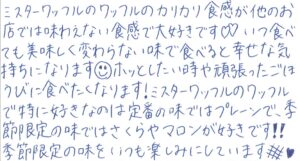 ミスターワッフルのワッフルのカリカリ食感が他のお
店では味わえない食感で大好きです♡♡いつ食べ
ても美味しく変わらない味で食べると幸せな気
持ちになります☺ホッとしたい時や頑張ったごほ
うびに食べたくなります!ミスターワッフルのワッフル
で特に好きなのは定番の味ではプレーンで、季
節限定の味ではさくらやマロンが好きです!!
季節限定の味をいつも楽しみにしています♥